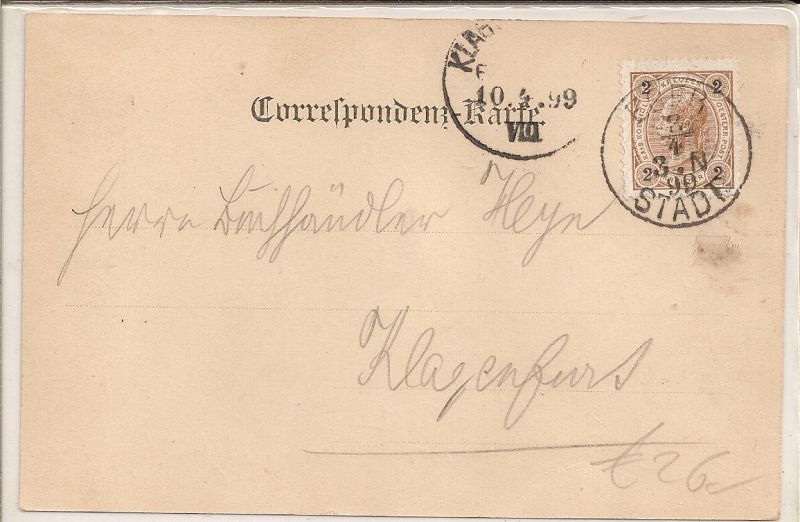 Correspondenz-Karte.
KLAG
10.4.99
VIII
2 KREUZER 2
KAIS. KÖNIGL. OESTERR. POST.
2 2
4
3.N
99
STADT
Herrn Buchhändler Heyn
Klagenfurt
€ 26